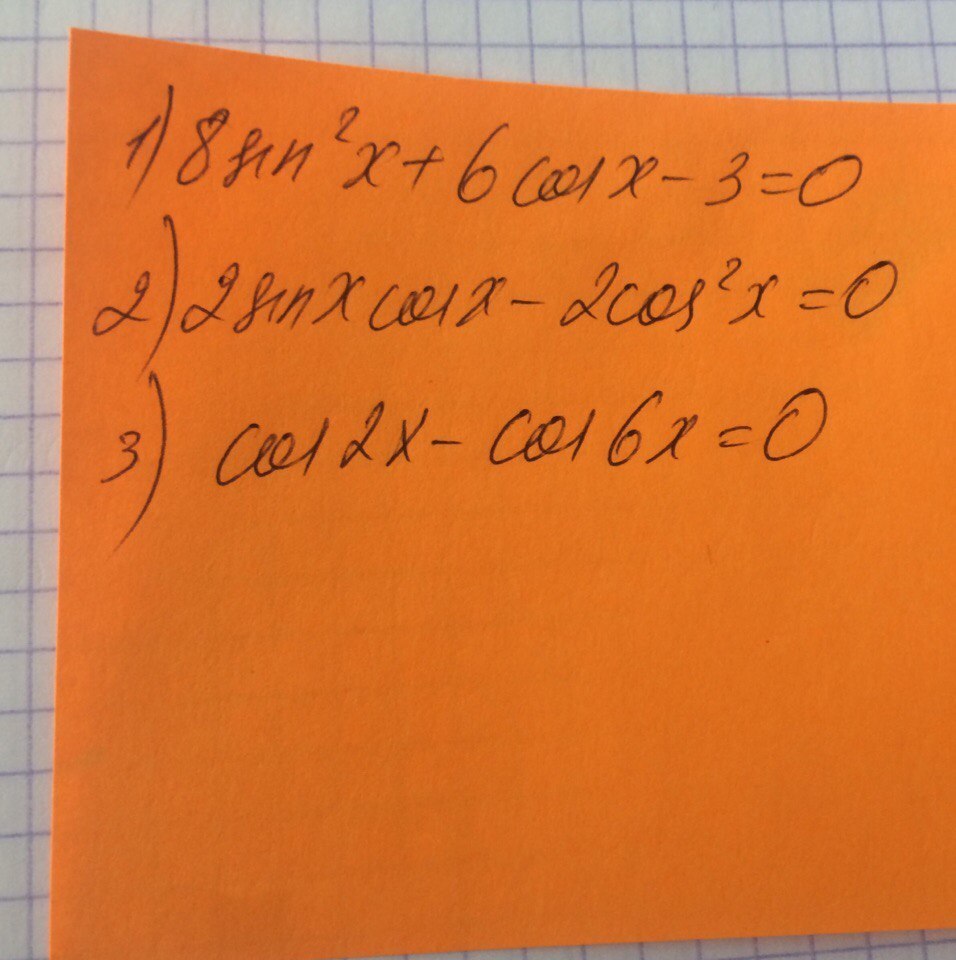 1) 8 sin²x + 6 cos x - 3 = 0
2) 2 sin x cos x - 2 cos²x = 0
3) cos 2x - cos 6x = 0